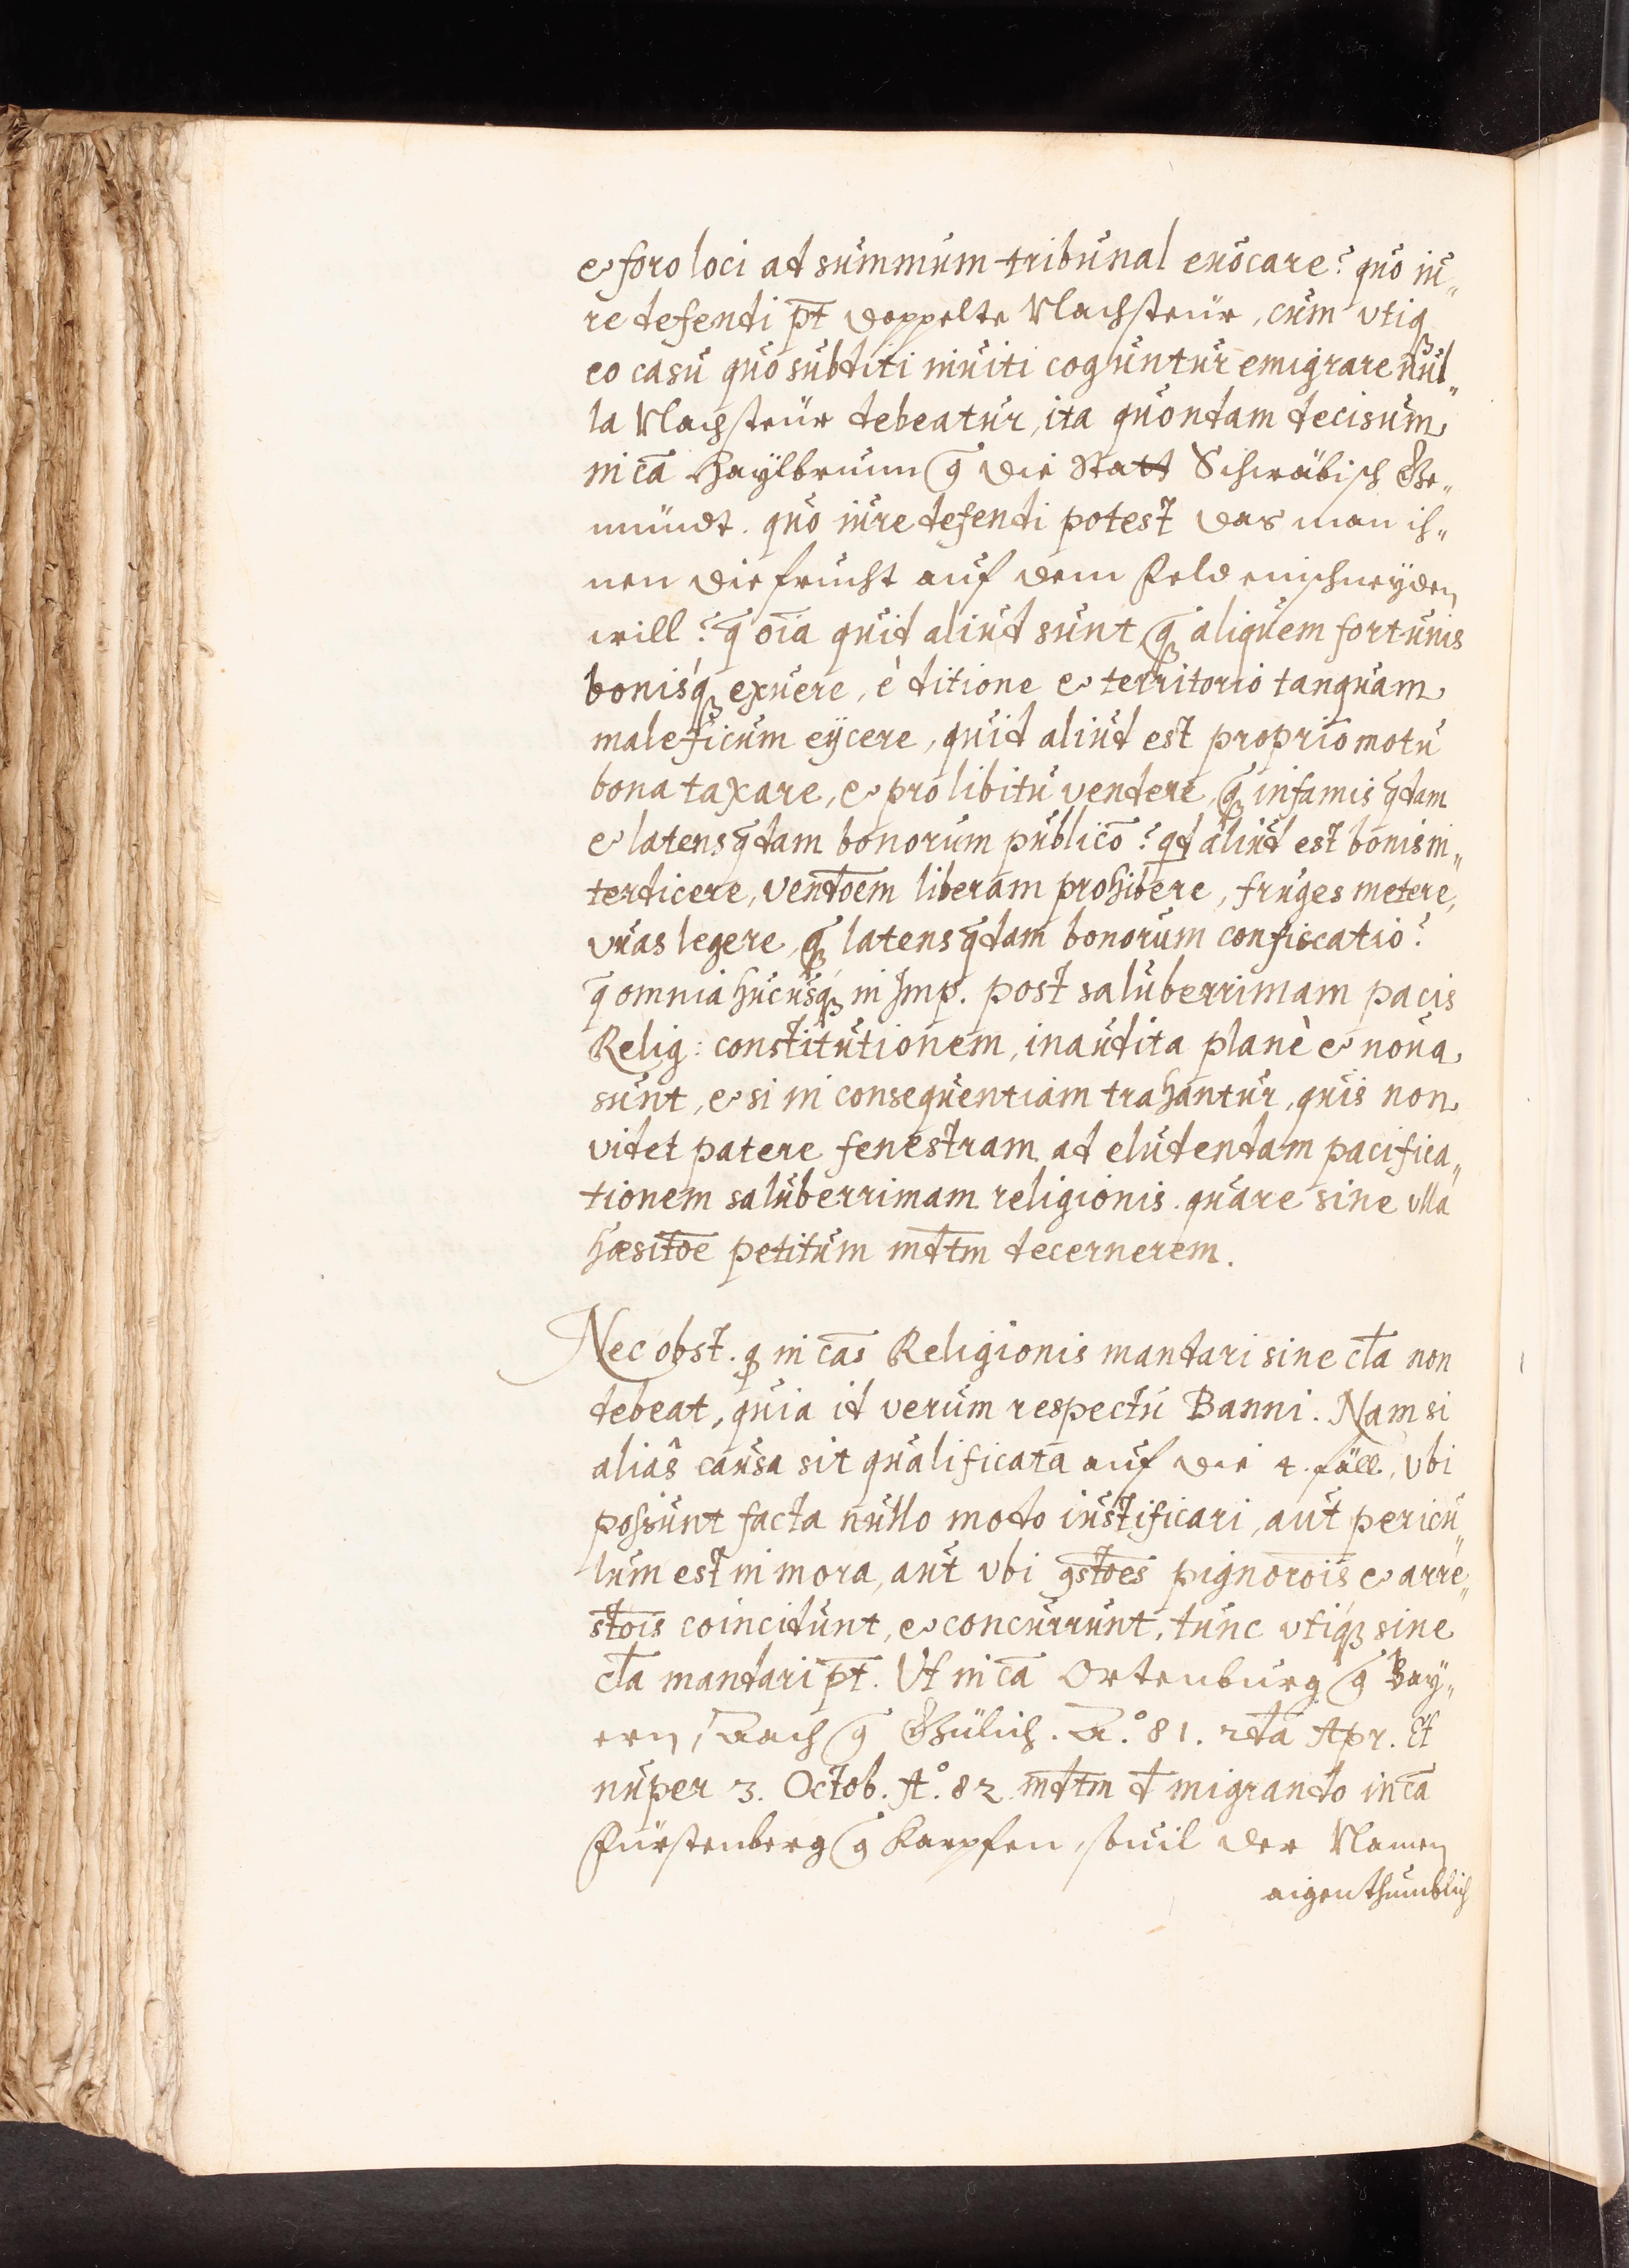 & foro loci ad summum tribunal euocare? quo iu„
re defendi pt̄ doppelte Nachsteür, cum vtiq
eo casu quo subditi inuiti coguntur emigrare nul„
la Nachsteür debeatur, ita quondam decisum
in cā Haÿlbrunn c̄ die Statt Schwäbisch Ge„
mündt. quo iure defendi potest das man ih„
nen die frucht auf dem Feld einschneÿden
will? q̄ oīa quid aliud sunt q̄ aliquem fortunis
bonisq́ꝫ exuere, è ditione & territorio tanquam
maleficum eÿcere, quid aliud est proprio motu
bona taxare, & pro libitu vendere, q̄ infamis q̄dam
& latens q̄dam bonorum publicō? qd aliud est bonis in„
terdicere, vendōem liberam prohibere, fruges metere,
vuas legere, q̄ latens q̄dam bonorum confiscatio?
q̄ omnia hucusq́ꝫ in Imp. post saluberrimam pacis
Relig: constitutionem, inaudita planè & noua
sunt, & si in consequentiam trahantur, quis non
videt patere fenestram ad eludendam pacifica„
tionem saluberrimam religionis. quare sine vlla
hæsitōe petitum mdtm̄ decernerem.
Nec obst. ꝙ in cās Religionis mandari sine cl̄a non
debeat, quia id verum respectu Banni. Nam si
aliâs causa sit qualificata auf die 4. fäll, vbi
possunt facta nullo modo iustificari, aut pericu„
lum est in mora, aut vbi ꝯstōes pignorōis & arre„
stōis coincidunt, & concurrunt, tunc vtiqꝫ sine
cl̄a mandari pt̄. Vt in cā Ortenburg c̄ Baÿ„
ern, Aach c̄ Gülich. A.° 81. 2dā Apr. Et
nuper 3. Octob. A.° 82 mdtm̄ d̄ migrando in cā
Fürstenberg c̄ Karpfen, souil der Namen
aigenthumblich